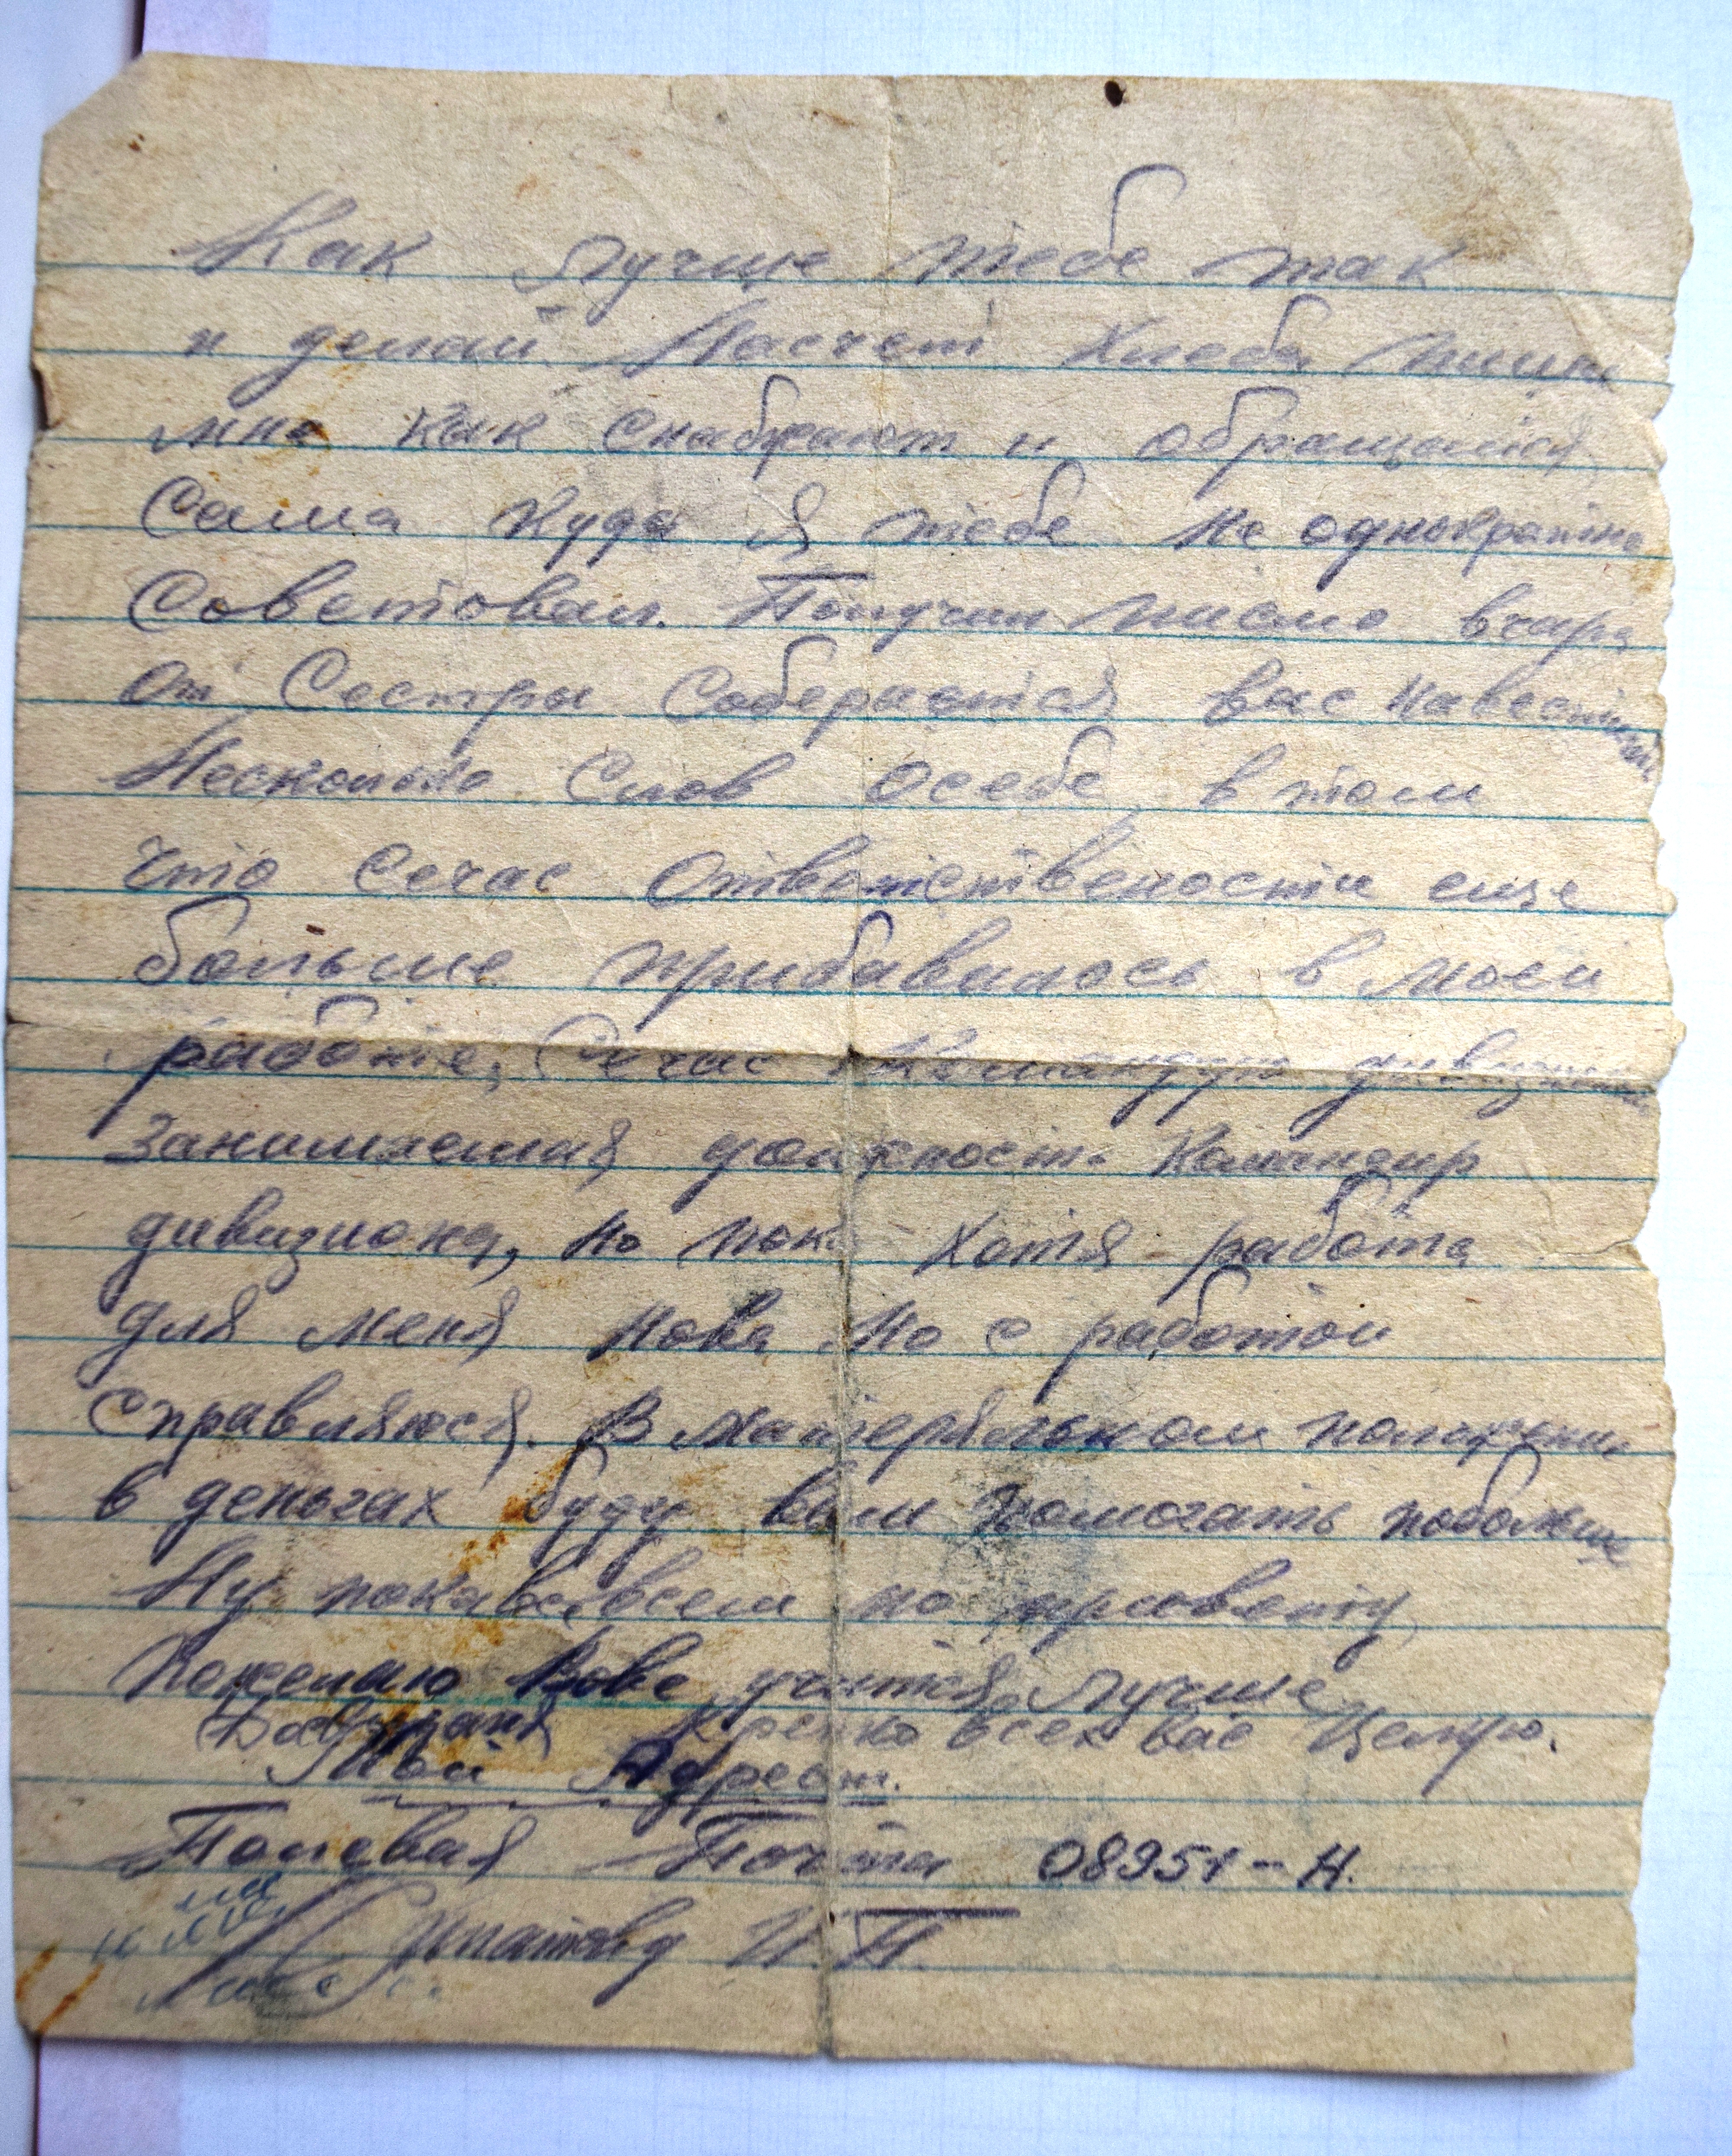 Как лучше тебе так
и делай Насчет Хлеба пиши
мне как снабжают и обращайся
Сама куда я тебе не однократно
Советовал. Получил писмо вчера
от Сестры Собераится вас навестить
Несколько Слов осебе, в том
что сечас Ответствености еще
больше прибавилось в моей
работе, Сечас Командую дивизионом
Занимаемая должность Командир
дивизиона, но пока хотя работа
для меня нова но с работой
справляюся. В матеряльном положении
в деньгах буду вам помогать побольше
Ну пока всем по привету
Пожелаю Вове учится лучше
Досвидания Крепко всех вас Целую.
Мой Адрест.
Полевая Почта 08951-Н.
Ипатову И П.